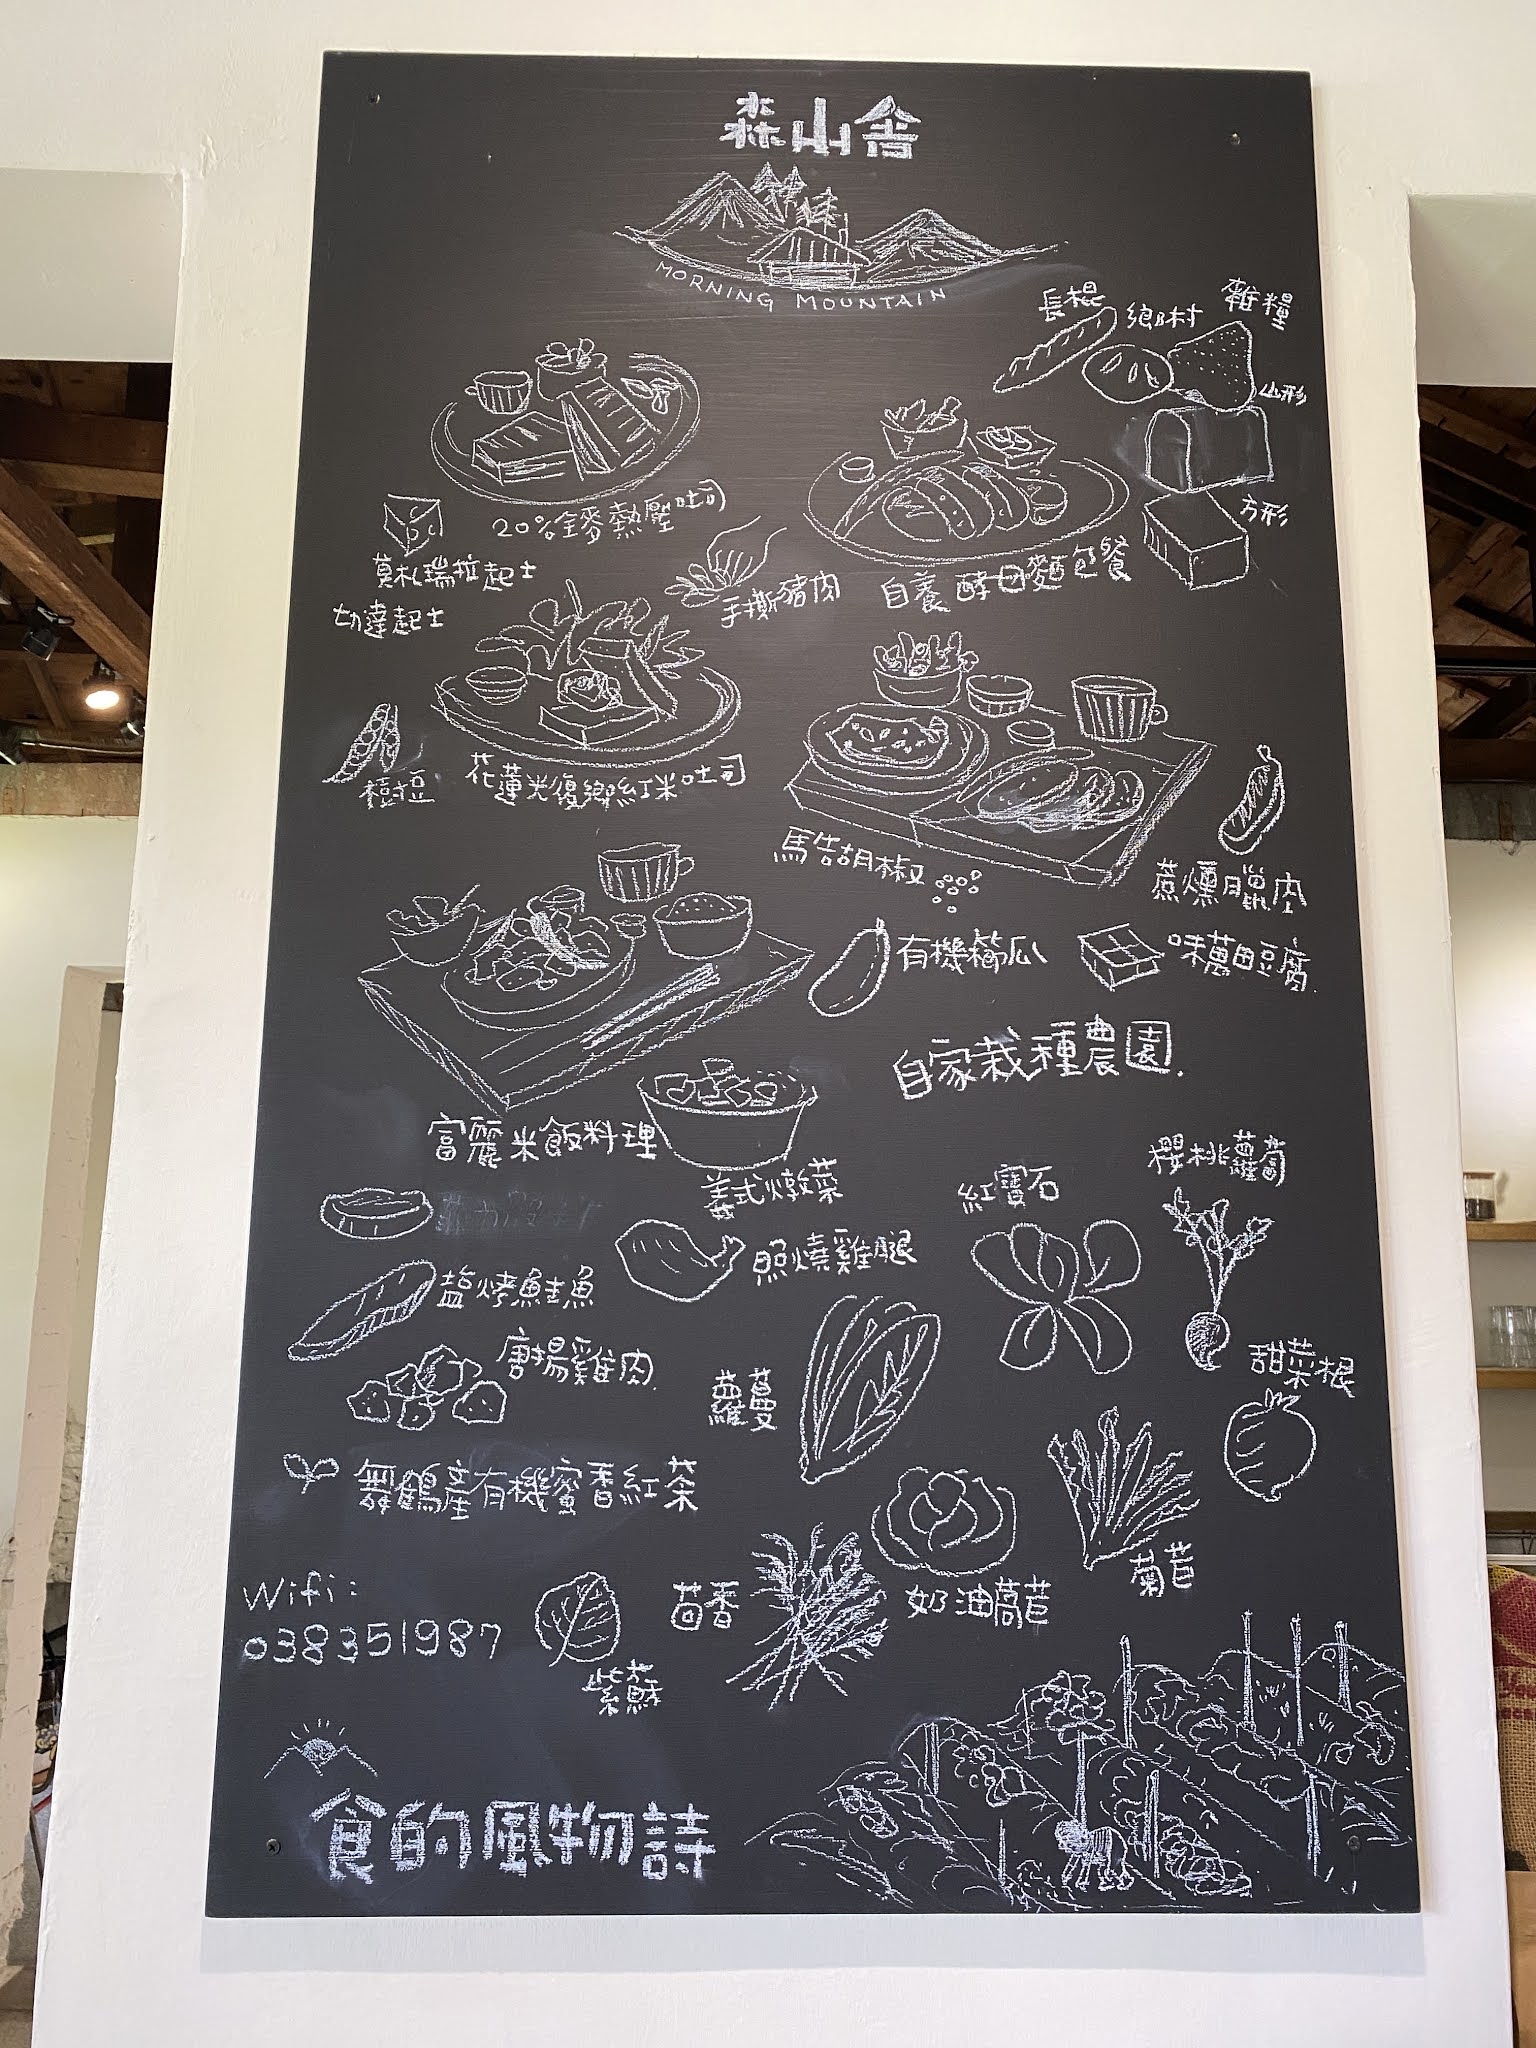 森山舍
MORNING MOUNTAIN
長棍
鄉村
雜糧
山形
方形
20%全麥熱壓吐司
莫札瑞拉起士
切達起士
手撕豬肉
自養酵母麵包餐
樹豆
花蓮光復鄉紅米吐司
馬告胡椒
蔗燻臘肉
有機櫛瓜
味萬田豆腐
自家栽種農園.
富麗米飯料理
義式燉菜
紅寶石
櫻桃蘿蔔
照燒雞腿
塩烤鮭魚
唐揚雞肉.
蘿蔓
甜菜根
舞鶴産有機蜜香紅茶
菊苣
奶油萵苣
茴香
Wifi:
038351987
紫蘇
食的風物詩